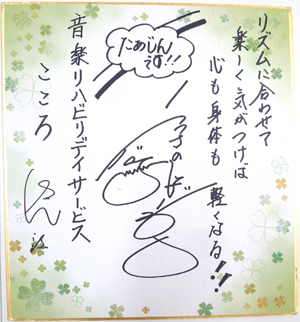 リズムに合わせて
楽しく気がつけば
心も身体も
軽くなる!!
たぁじん
です!!
音楽リハビリデイサービス
こころ
さん江